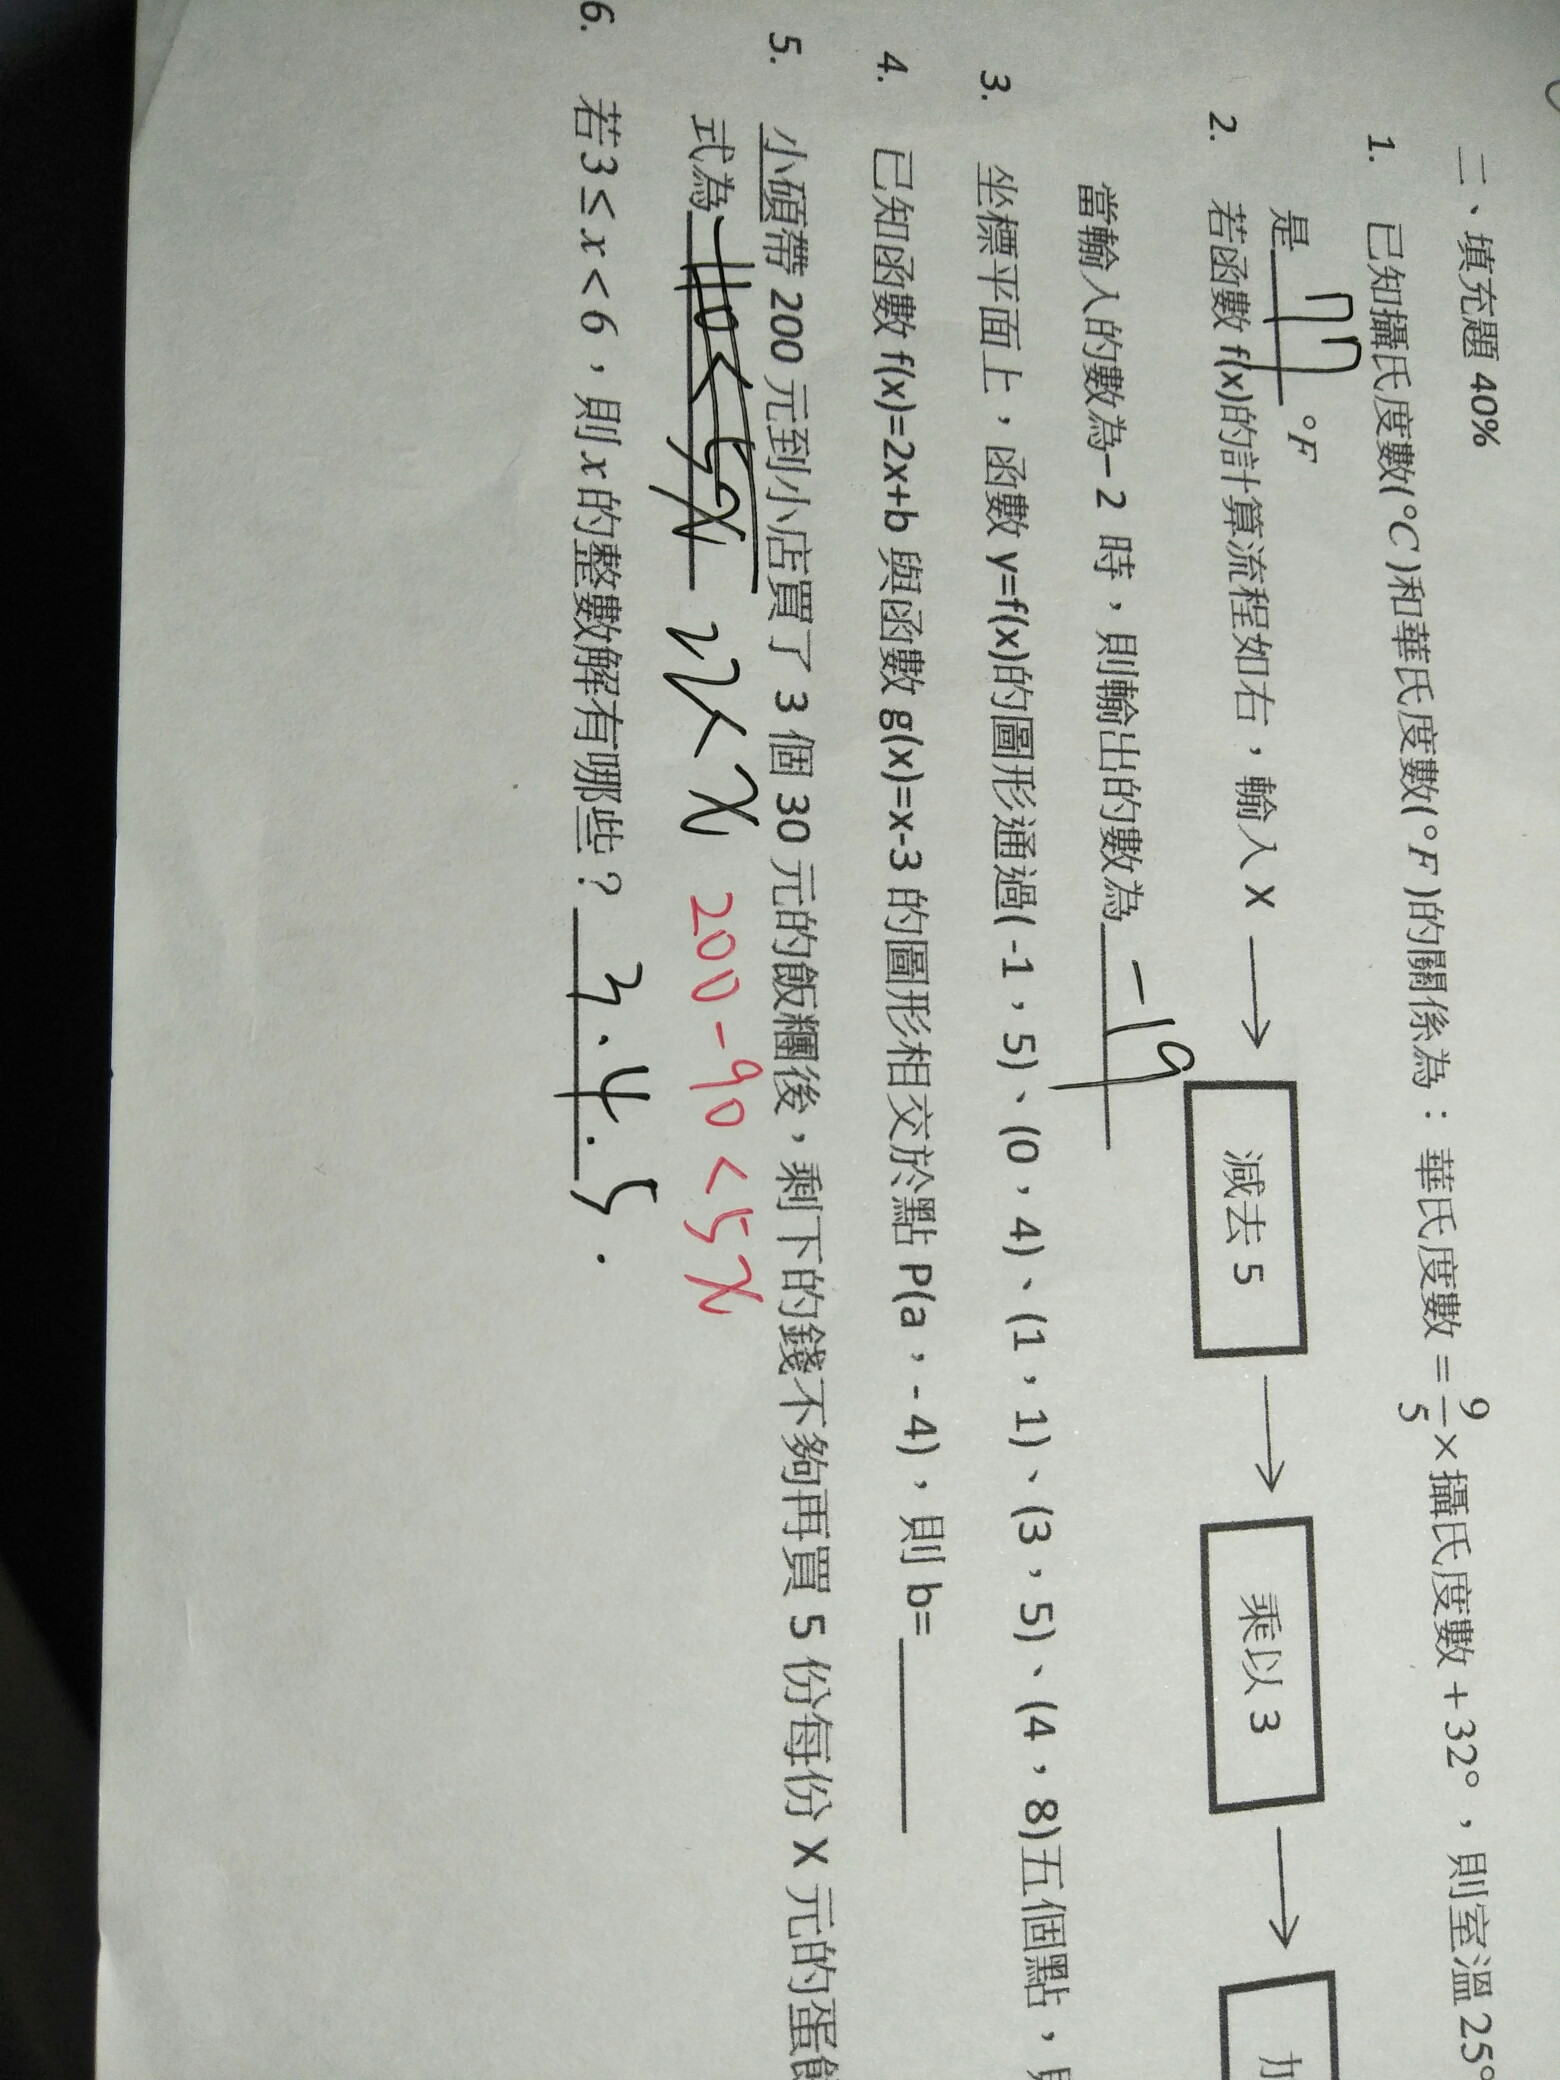 二、填充題 40%
1. 已知攝氏度數(°C)和華氏度數(°F)的關係為：華氏度數 = 9/5 × 攝氏度數 + 32°，則室溫 25°
是 77 °F
2. 若函數 f(x)的計算流程如右，輸入 X → 減去 5 → 乘以 3 →
當輸入的數為－2 時，則輸出的數為 -19
3. 坐標平面上，函數 y=f(x)的圖形通過( -1，5)、(0，4)、(1，1)、(3，5)、(4，8)五個點，
4. 已知函數 f(x)=2x+b 與函數 g(x)=x-3 的圖形相交於點 P(a，- 4)，則 b=
5. 小碩帶 200 元到小店買了 3 個 30 元的飯糰後，剩下的錢不夠再買 5 份每份 X 元的蛋
式為 110<5x 22<x 200-90<5x
6. 若 3 ≤ x < 6，則 x 的整數解有哪些？ 3.4.5.